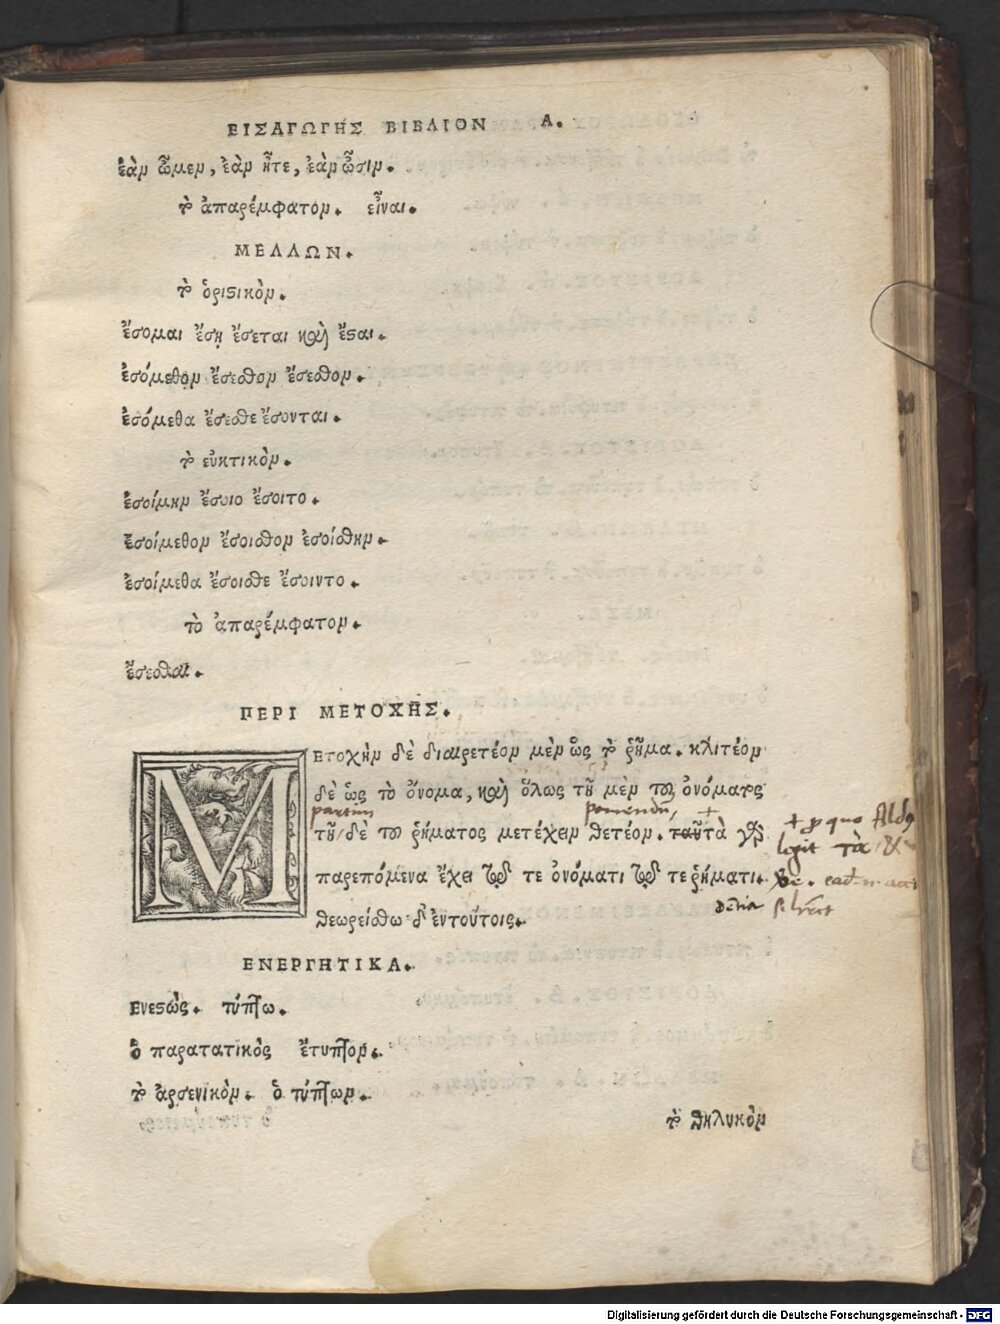 ΕΙΣΑΓΩΓΗΣ ΒΙΒΛΙΟΝ Α.
ἐὰν ὦμεν, ἐὰν ἦτε, ἐὰν ὦσιν.
τὸ ἀπαρέμφατον. εἶναι.
ΜΕΛΛΩΝ.
τὸ ὁριστικὸν.
ἔσομαι ἔσῃ ἔσεται καὶ ἔσται.
ἐσόμεθον ἔσεσθον ἔσεσθον.
ἐσόμεθα ἔσεσθε ἔσονται.
τὸ εὐκτικὸν.
ἐσοίμην ἔσοιο ἔσοιτο.
ἐσοίμεθον ἔσοισθον ἐσοίσθην.
ἐσοίμεθα ἔσοισθε ἔσοιντο.
τὸ ἀπαρέμφατον.
ἔσεσθαι.
ΠΕΡΙ ΜΕΤΟΧΗΣ.
ΜΕΤΟΧὴν δὲ διαιρετέον μὲν ὡς τὸ ῥῆμα. κλιτέον
δὲ ὡς τὸ ὄνομα, καὶ ὅλως τοῦ μὲν τοῦ ὀνόματος
partim ponendum, +
τοῦ/δὲ τοῦ ῥήματος μετέχειν θετέον. ταῦτὰ γὰρ
+ p quo Ald9
legit τὰ
παρεπόμενα ἔχει τῷ τε ὀνόματι τῷ τε ῥήματι.
θεωρείσθω δ᾽ ἐντούτοις.
ΕΝΕΡΓΗΤΙΚΑ.
Ενεστὼς. τύπτω.
ὁ παρατατικὸς ἔτυπτον.
τὸ ἀρσενικὸν. ὁ τύπτων.
τὸ θηλυκὸν
Digitalisierung gefördert durch die Deutsche Forschungsgemeinschaft - DFG